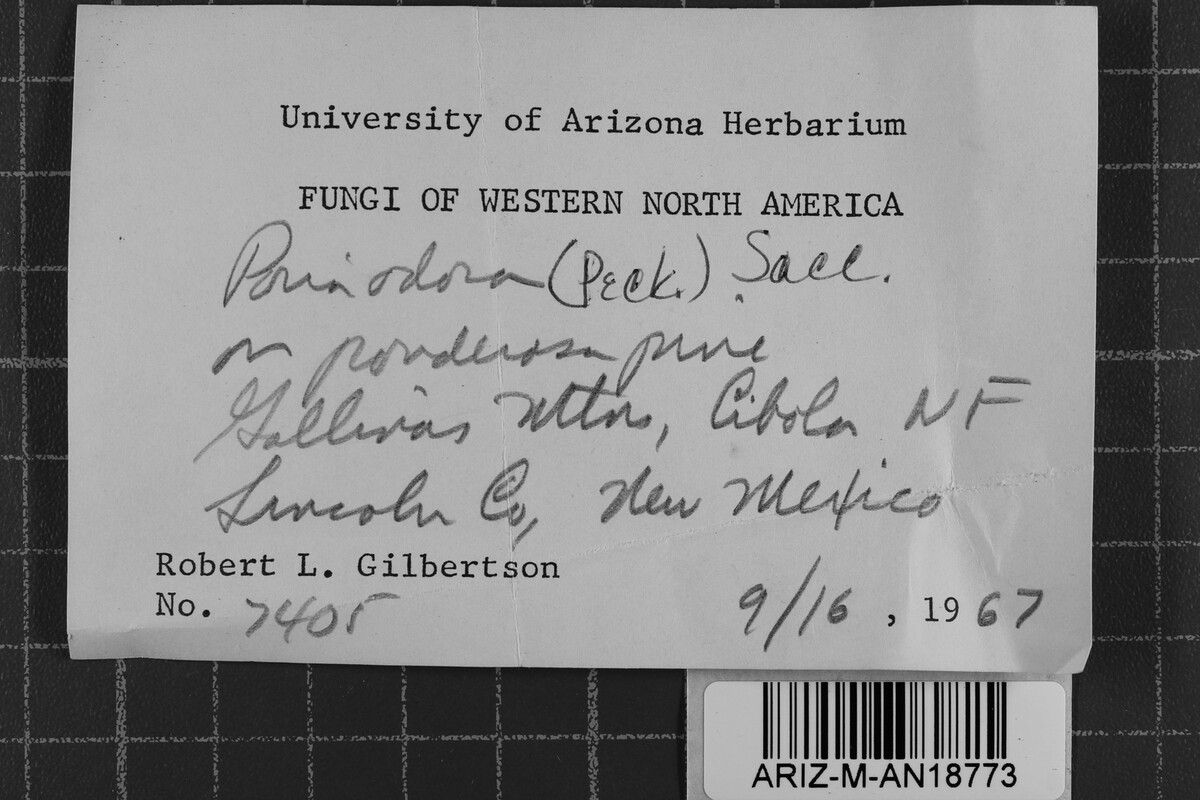 University of Arizona Herbarium
FUNGI OF WESTERN NORTH AMERICA
Poria odora (Peck.) Sacc.
on ponderosa pine
Gallinas Mtns, Cibola NF
Lincoln Co, New Mexico
Robert L. Gilbertson
No. 7405 9/16, 1967
ARIZ-M-AN18773